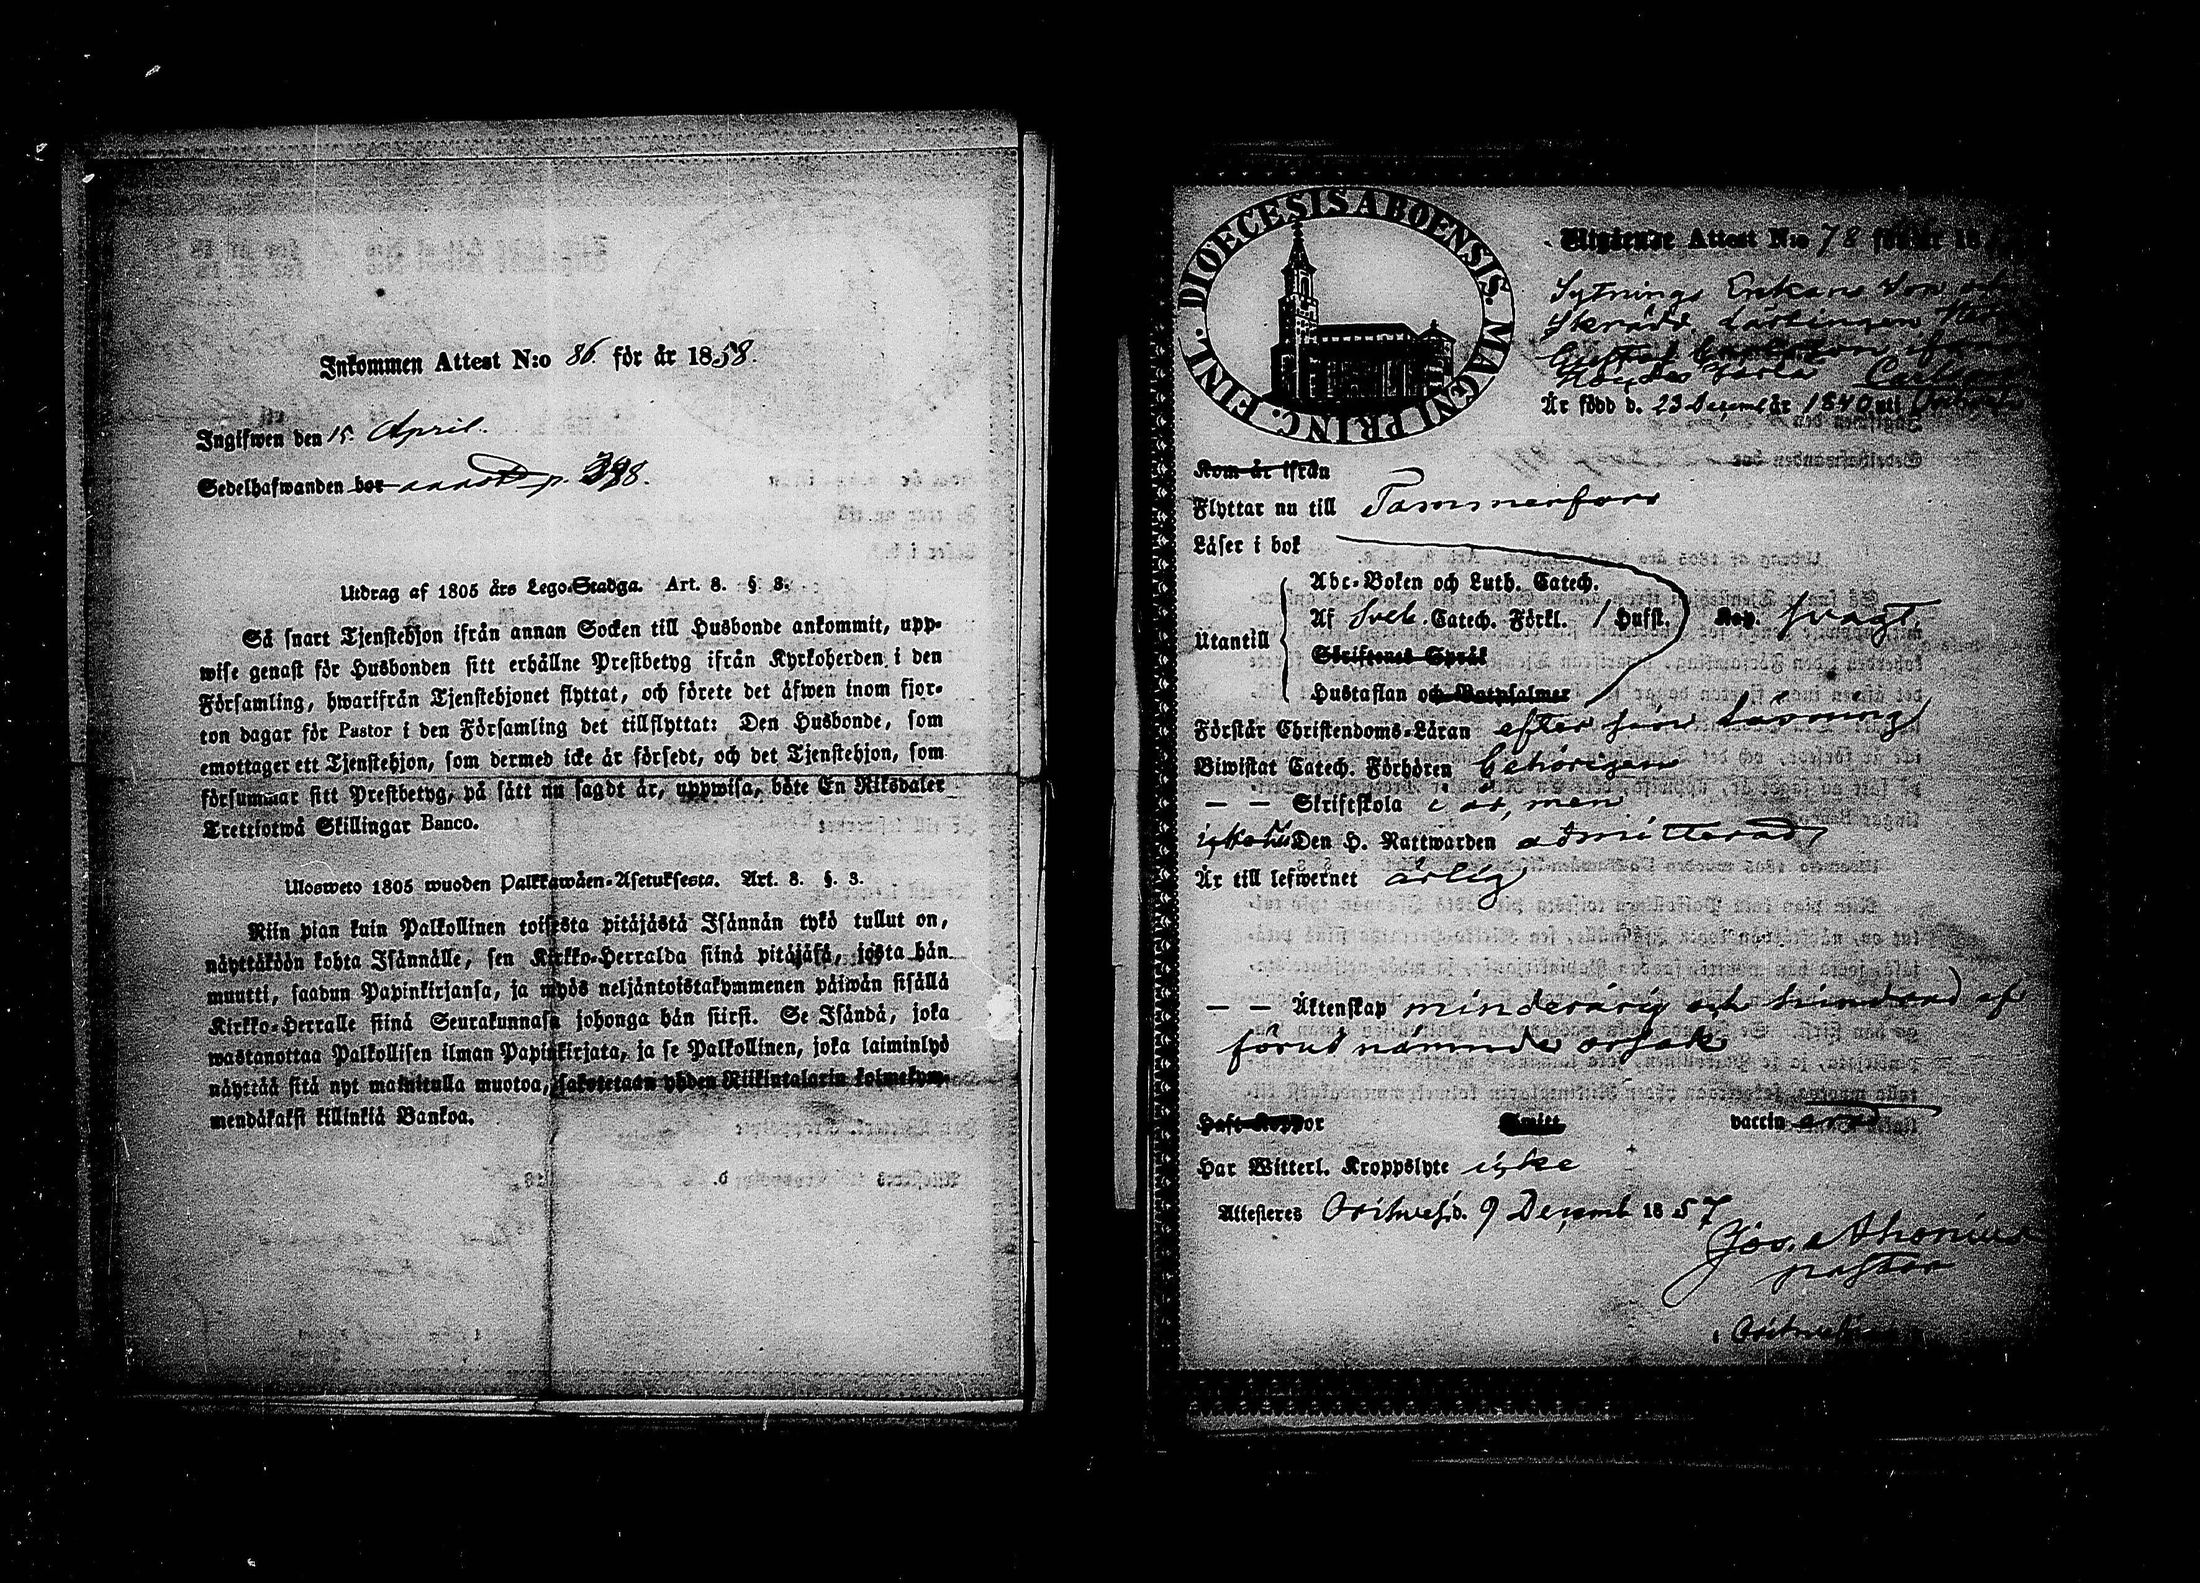 Inkommen Attest N:o 86 för år 1858.
Ingifwen den 15. April.
Sedelhafwanden bor p. 398.
Utdrag af 1805 års Lego-Stadga. Art. 8. § 3.
Så snart Tjenstehjon ifrån annan Socken till Husbonde ankommit, upp-
wise genast för Husbonden sitt erhållne Prestbetyg ifrån Kyrkoherden i den
Församling, hwarifrån Tjenstehjonet flyttat, och förete det äfwen inom fjor-
ton dagar för Pastor i den Församling det tillflyttat: Den Husbonde, som
emottager ett Tjenstehjon, som dermed icke är försedt, och det Tjenstehjon, som
försummar sitt Prestbetyg, på sätt nu sagdt är, uppwisa, böte En Riksdaler
Trettiotwå Skillingar Banco.
Ulosweto 1805 wuoden Palkkawäen-Asetuksesta. Art. 8. §. 3.
Niin pian kuin Palkollinen toisesta pitäjästä Isännän tykö tullut on,
näyttäköön kohta Isännälle, sen Kirkko-Herralda siinä pitäjäsä, josta hän
muutti, saadun Papinkirjansa, ja myös neljäntoistakymmenen päiwän sisällä
Kirkko-Herralle siinä Seurakunnasa johonga hän siirsi. Se Isändä, joka
wastanottaa Palkollisen ilman Papinkirjata, ja se Palkollinen, joka laiminlyö
näyttää sitä nyt mainitulla muotoa, sakotetaan yhden Riikintalarin kolmekym-
mendäkaksi killinkiä Bankoa.
DIOECESIS ABOENSIS. MAGNI PRINC. FINL.
Utgående Attest N:o 78 för år 18
Sytnings Enkans Son och
Skrädd. Lärlingen
Gustaf ifrån
Är född d. 23 Decemb år 1840 uti
Kom år ifrån
Flyttar nu till Tammerfors
Läser i bok
Abc-Boken och Luth. Catech.
Utantill Af Sveb. Catech. Förkl. / Husst. Kap. svagt.
Skriftenes Språk
Hustaflan och Botpsalmer
Förstår Christendoms-Läran efter sin läsning
Biwistat Catech. Förhören behörigen
— — Skriftskola i år, men
icke till Den H. Nattwarden admitterad
Är till lefwernet ärlig
— — Äktenskap minderårig och hindrad af
förut nämnde orsak
Haft Koppor Smitt vaccinerad
Har Witterl. Kroppslyte icke
Attesteres Orihvesi d. 9 Decemb 1857
Jos. Ahonius
pastor